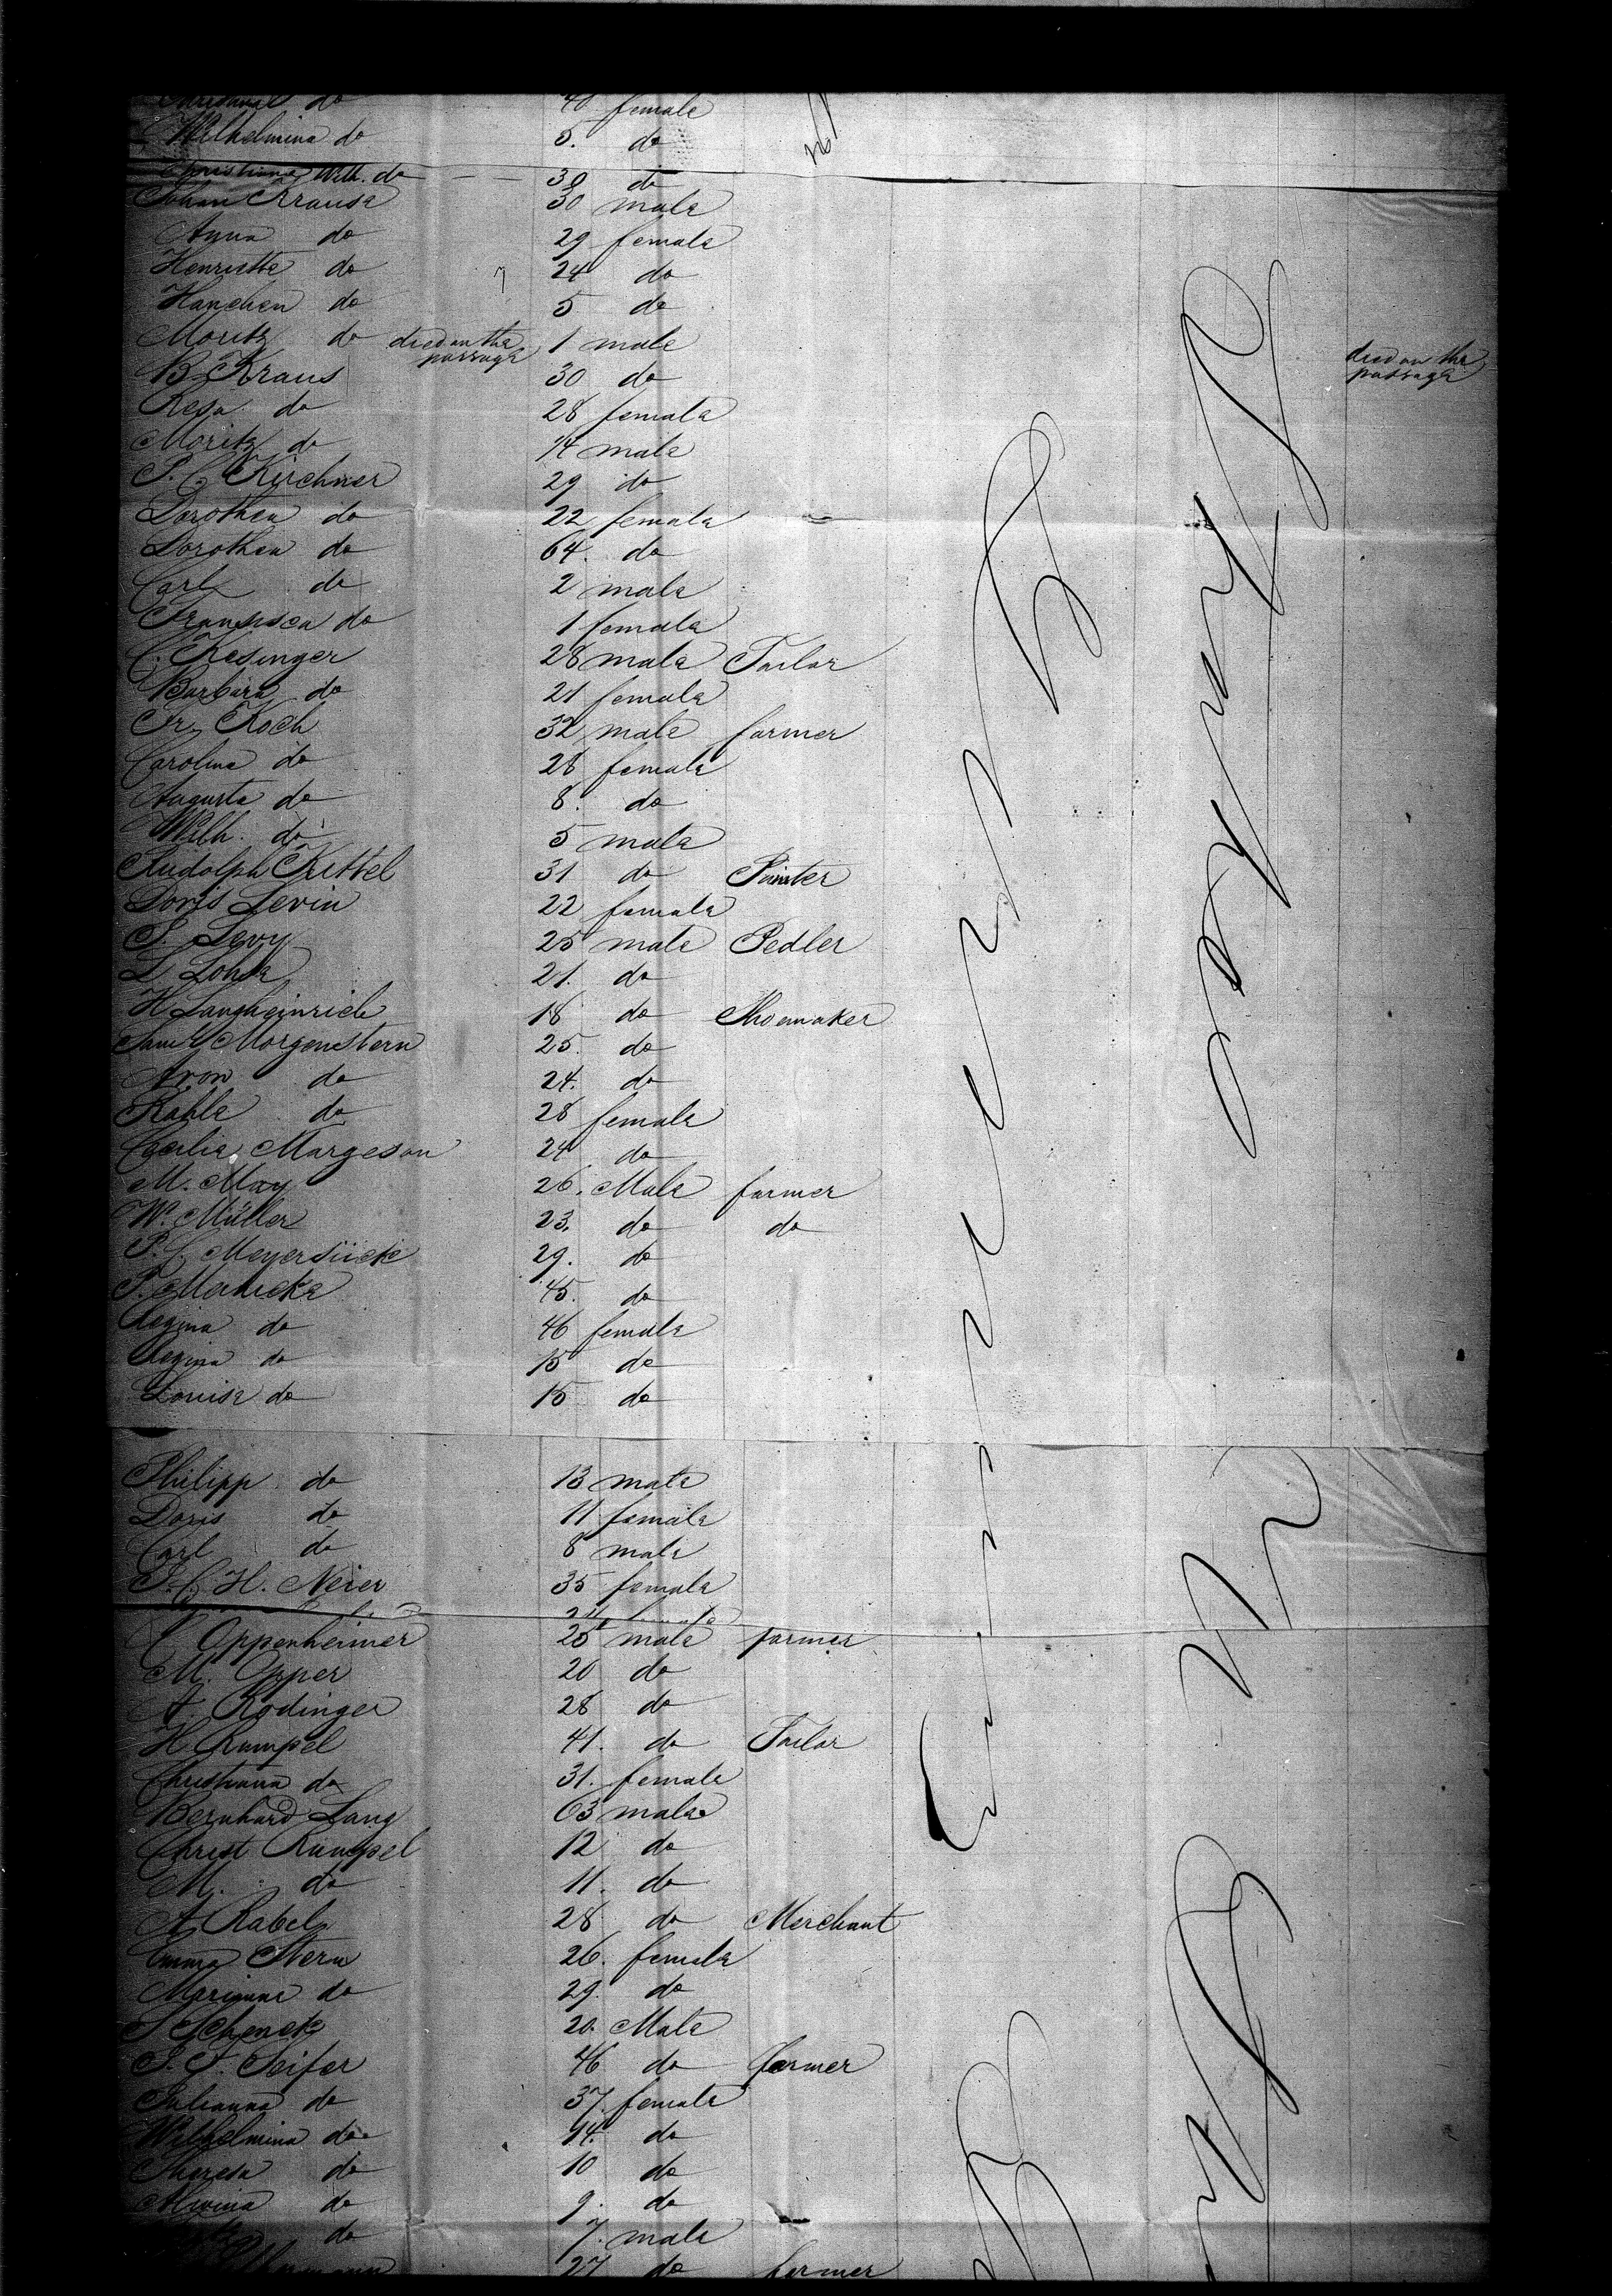 do 4 female
Wilhelmina do 5. do
Christiana Wilh. do 30 do
Johan Krause 30 male
Anna do 29 female
Henriette do 24 do
Hanchen do 5 do
Moritz do died on the passage 1 male died on the passage
B. Kraus 30 do
Resa do 28 female
Moritz do 14 male
P. C. Kirchner 29 do
Dorothea do 22 female
Dorothea do 64. do
Carl do 2 male
Franzisca do 1 female
C. Kesinger 28 male Tailor
Barbara do 21 female
Fr. Koch 32 male farmer
Carolina do 28 female
Augusta do 8. do
Wilh. do 5 male
Rudolph Kittel 31 do Painter
Doris Levin 22 female
S. Levy 25 male Pedler
L. 21. do
H. Langheinrich 18 do Shoemaker
Saml Morgenstern 25. do
Aron do 24. do
Rahle do 28 female
Cecilia Margeson 24 do
M. May 26. Male farmer
W. Müller 23. do do
P. C. Meyersück 29. do
P. 45. do
Regina do 46 female
Regina do 15 do
Louisa do 15 do
Philipp do 13 male
Doris do 11 female
Carl do 8 male
J. C. H. Neier 35 female
24 female
Oppenheimer 25 male farmer
M. Opper 20 do
A. Rodinger 28 do
H. Rumpel 41. do Tailor
Christiana do 31. female
Bernhard Lang 63 male
Christ Rumpel 12 do
M. do 11. do
A. Rabel 28 do Merchant
Emma Stern 26. female
Marianne do 29. do
S. Schenck 20. Male
S. F. Seifer 46 do farmer
Julianna do 37. female
Wilhelmina do 14. do
Theresa do 10 do
Alwina do 9. do
do 7. male
27 do farmer